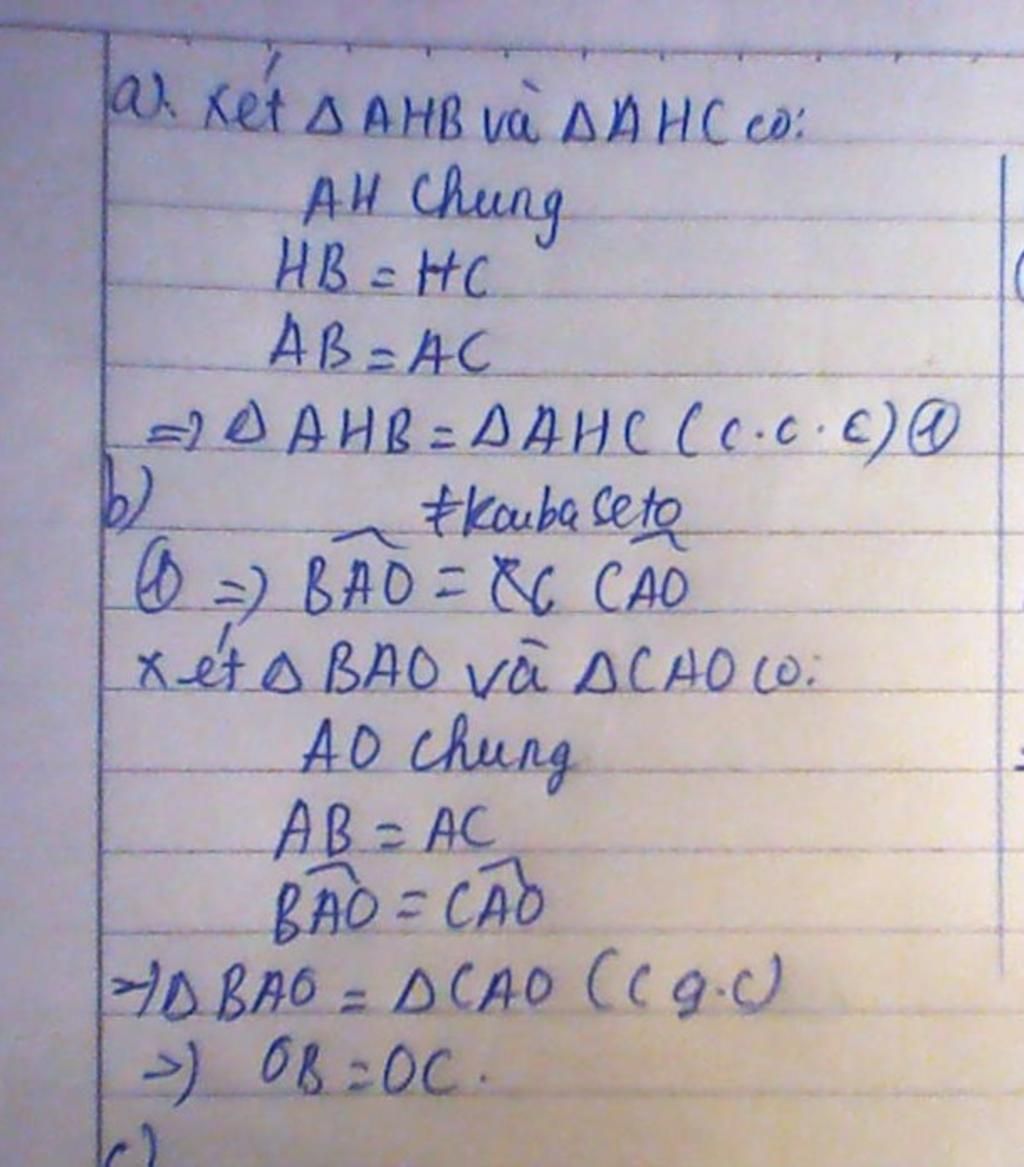 a). Xét Δ AHB và Δ AHC có:
AH chung
HB = HC
AB = AC
=> Δ AHB = Δ AHC (c.c.c) ①
b)
≠kaubaseto
① => BAO = CAO
xét Δ BAO và Δ CAO có:
AO chung
AB = AC
BAO = CAO
=> Δ BAO = Δ CAO (c g.c)
=> OB = OC.
c)